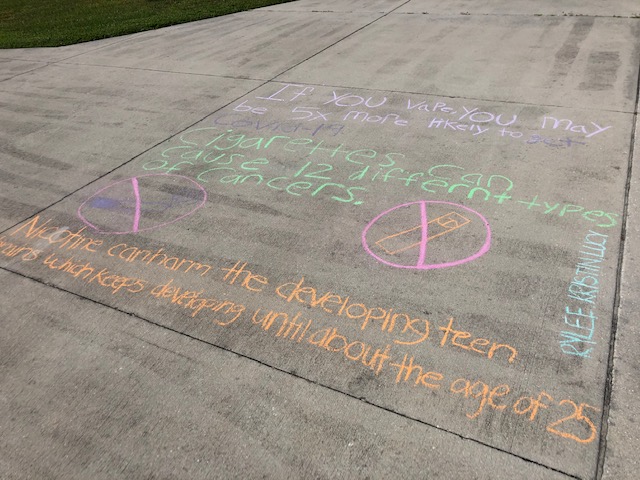 If you vape, you may
be 5x more likely to get
Covid-19.
Cigarettes can
cause 12 differnt types
of Cancers.
Nicotine can harm the developing teen
which keeps developing until about the age of 25
RYLEE KRISTIN LUCY